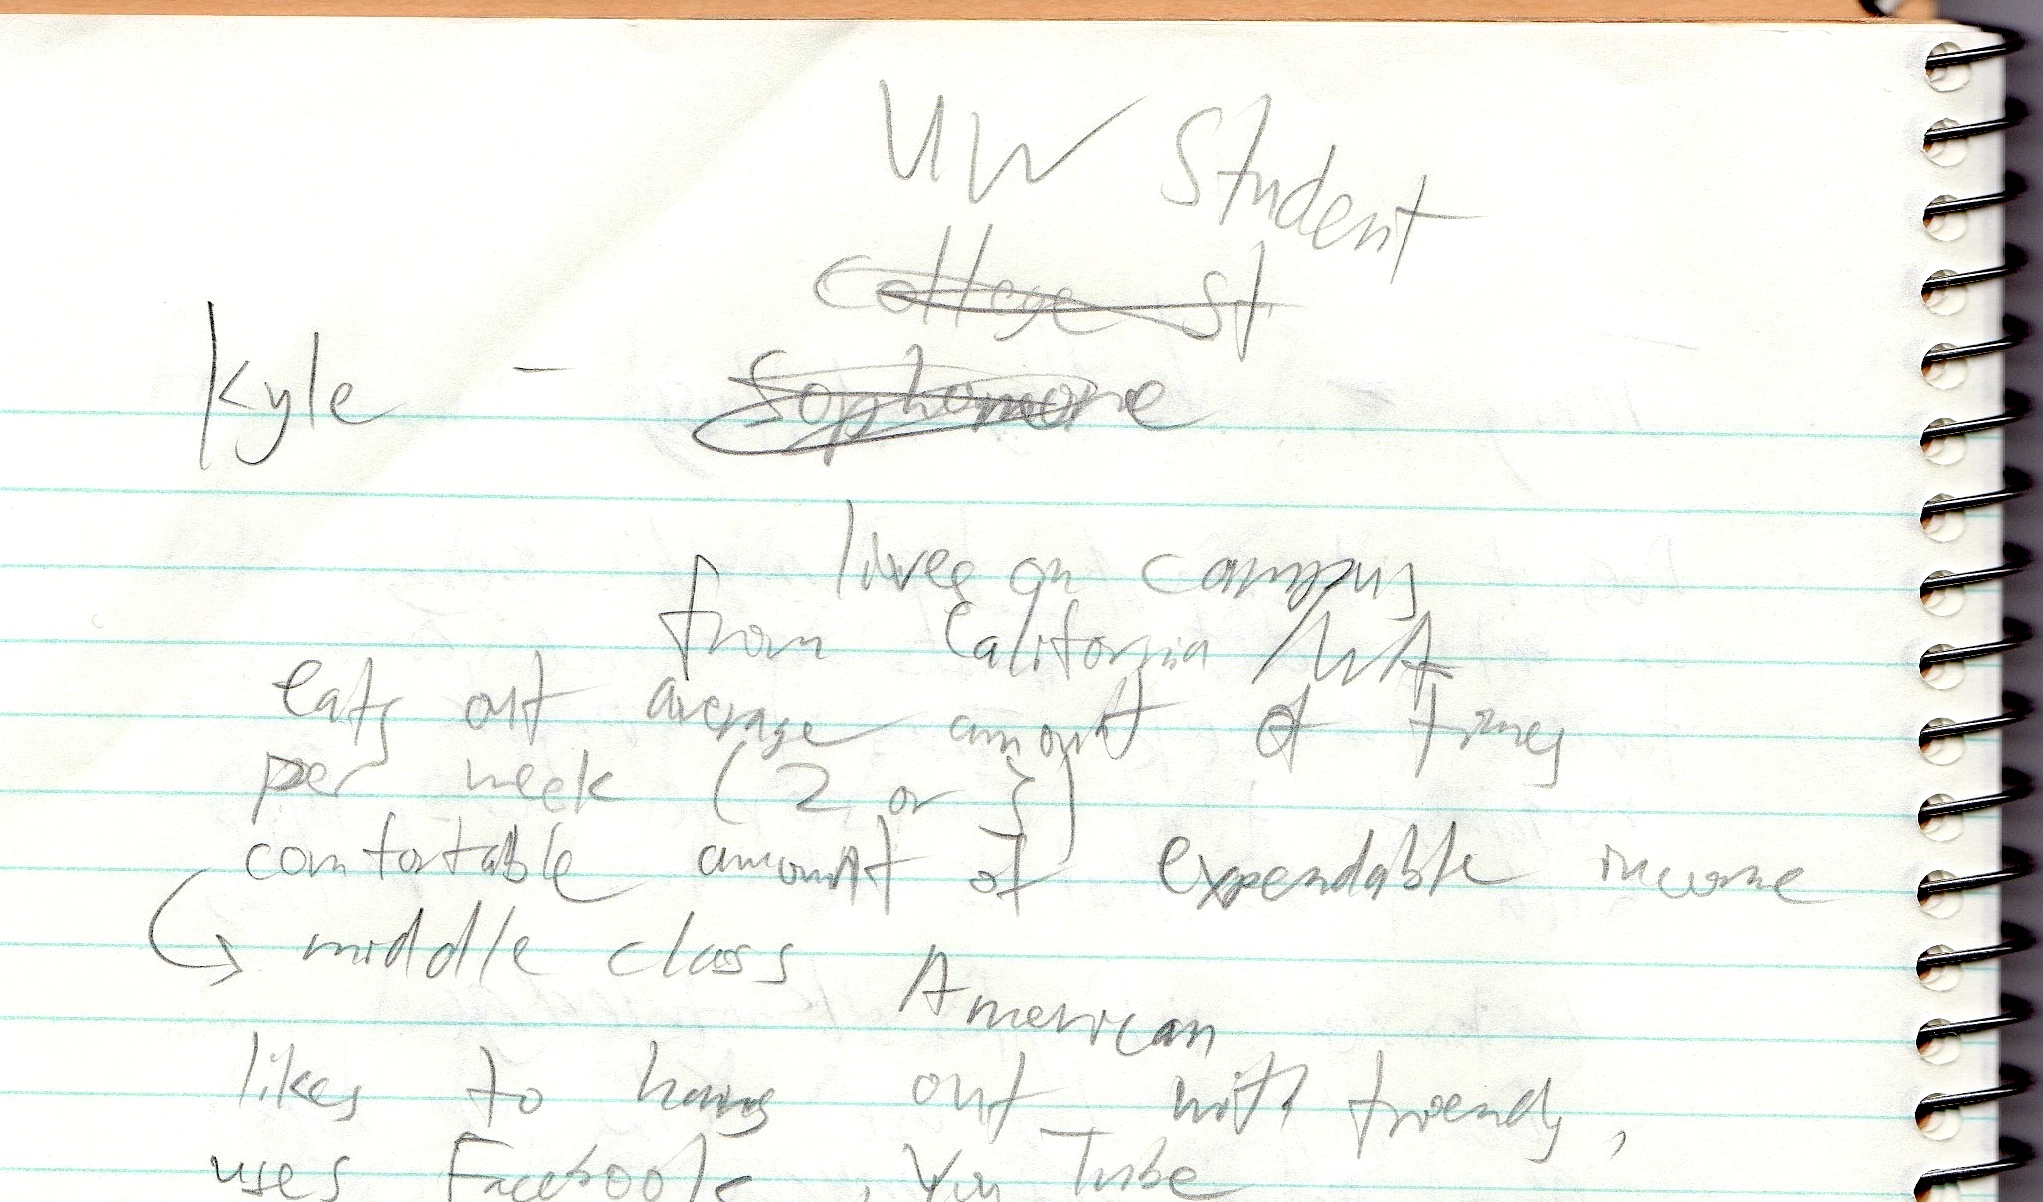 UW Student
College St
Kyle - Sophomore
lives on campus
from California / WA
eats out average amount of times
per week (2 or 3)
comfortable amount of expendable income
→ middle class American
likes to hang out with friends,
uses Facebook, YouTube